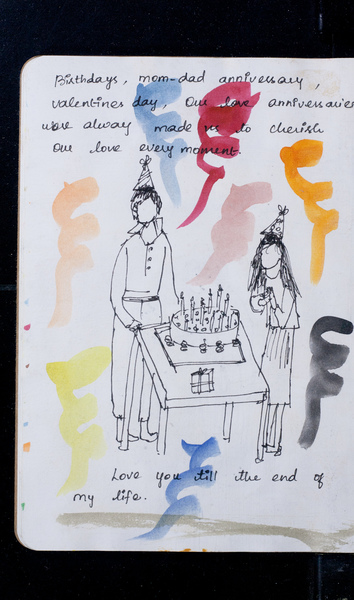 Birthdays, mom-dad anniversary,
valentines day, Our love anniversaries
were alway made us to cherish
our love every moment.
Love you till the end of
my life.